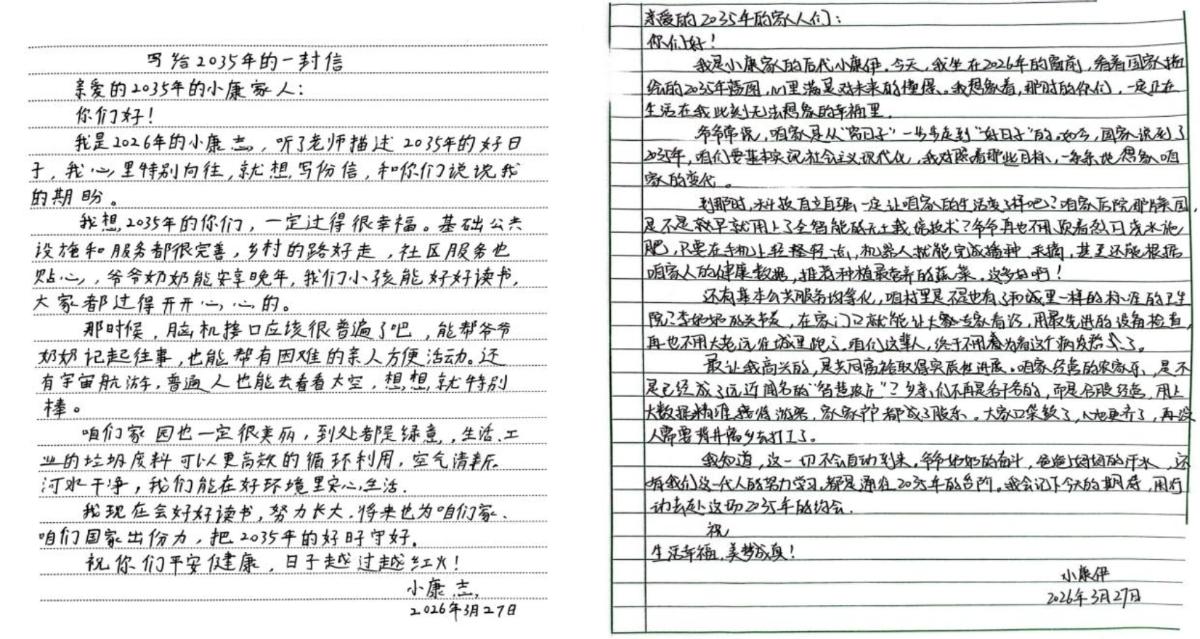 写给2035年的一封信
亲爱的2035年的小康家人:
你们好!
我是2026年的小康志,听了老师描述2035年的好日
子,我心里特别向往,就想写份信,和你们说说我
的期盼。
我想2035年的你们,一定过得很幸福。基础公共
设施和服务都很完善,乡村的路好走,社区服务也
贴心,爷爷奶奶能安享晚年,我们小孩能好好读书,
大家都过得开开心心的。
那时候,脑机接口应该很普遍了吧,能帮爷爷
奶奶记起往事,也能帮有困难的亲人方便活动。还
有宇宙航游,普通人也能去看看太空,想想就特别
棒。
咱们家园也一定很美丽,到处都是绿意,生活、工
业的垃圾废料可以更高效的循环利用,空气清新、
河水干净,我们能在好环境里安心生活.
我现在会好好读书,努力长大,将来也为咱们家、
咱们国家出份力,把2035年的好日子守好。
祝你们平安健康,日子越过越红火!
小康志
2026年3月27日
亲爱的2035年的家人们:
你们好!
我是小康家的后代小康伊。今天,我坐在2026年的窗前,看着国家描
绘的2035年蓝图,心里满是对未来的憧憬。我想象着,那时的你们,一定正在
生活在我此刻无法想象的幸福里.
爷爷常说,咱家是从“苦日子”一步步走到“好日子”的。如今,国家说到了
2035年,咱们要基本实现社会主义现代化,我对照着那些目标,一条条地想象咱
家的变化。
到那时,科技自立自强,一定让咱家的生活变了样吧?咱家后院那片菜园,
是不是就早就用上了全智能的无土栽培技术?爷爷再也不用顶着烈日浇水施
肥,只要在手机上轻轻一点,机器人就能完成播种、采摘,甚至还能根据
咱家人的健康数据,推荐种植最营养的蔬菜,这多好啊!
还有基本公共服务均等化,咱村里是不是也有了和城里一样的标准的卫生
院?李奶奶的关节炎,在家门口就能让大专家看诊,用最先进的设备检查,
再也不用大老远往城里跑了,咱们这辈人,终于不用为看个病发愁了。
最让我高兴的,是共同富裕取得实质性进展。咱家经营的农家乐,是不
是已经成了远近闻名的“智慧农庄”?乡亲们不再是各干各的,而是合股经营,用上
大数据精准推送游客,家家户户都成了股东。大家口袋鼓了,心也更齐了,再没
人需要背井离乡去打工了。
我知道,这一切不会自动到来。爷爷奶奶的奋斗,爸爸妈妈的汗水,还
有我们这一代人的努力学习,都是通往2035年的台阶。我会记下今天的期待,用行
动去赴这场2035年的约会.
祝
生活幸福,美梦成真!
小康伊
2026年3月27日